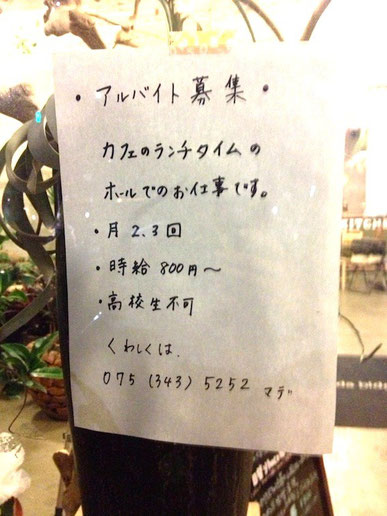 ・アルバイト募集・
カフェのランチタイムの
ホールでのお仕事です。
・月2,3回
・時給800円〜
・高校生不可
くわしくは、
075(343)5252 マデ